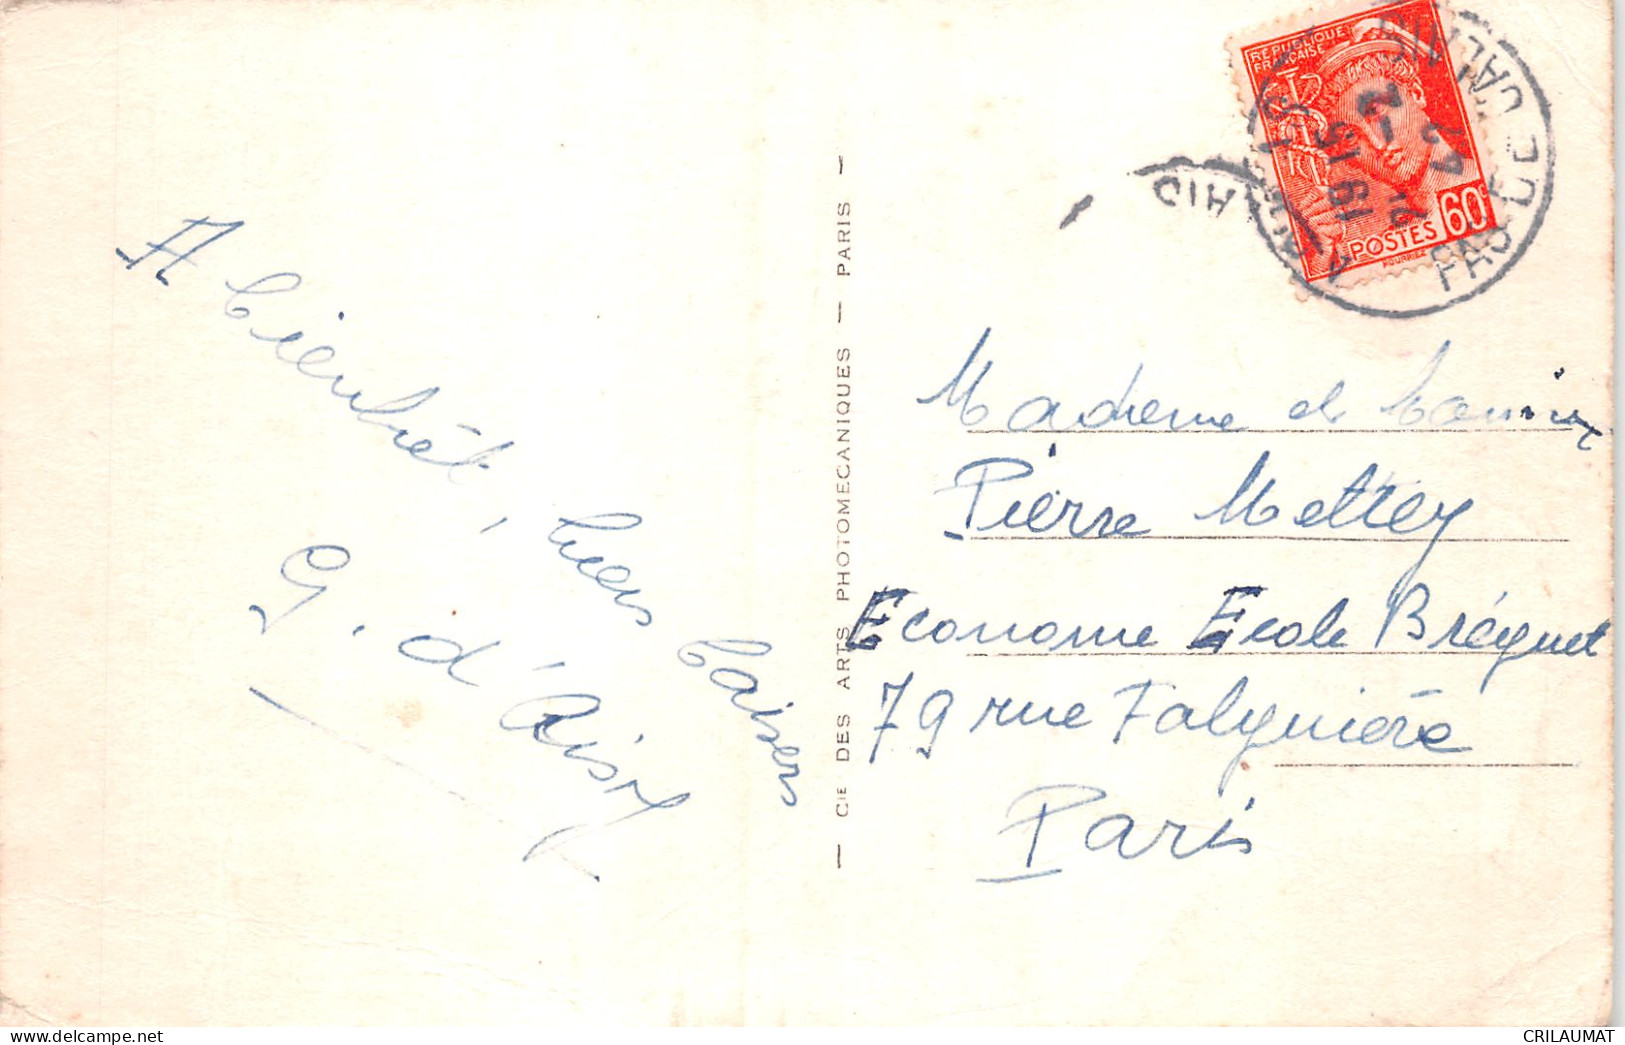 A bientôt, bien
baisers
G. d'Aisy
— CIE DES ARTS PHOTOMECANIQUES — PARIS —
RÉPUBLIQUE
FRANÇAISE
60c
POSTES
PAS DE CALAIS
19 15
2 -
Madame et
Pierre Mettey
Econome Ecole Bréguet
79 rue Falguière
Paris
delcampe.net
CRILAUMAT